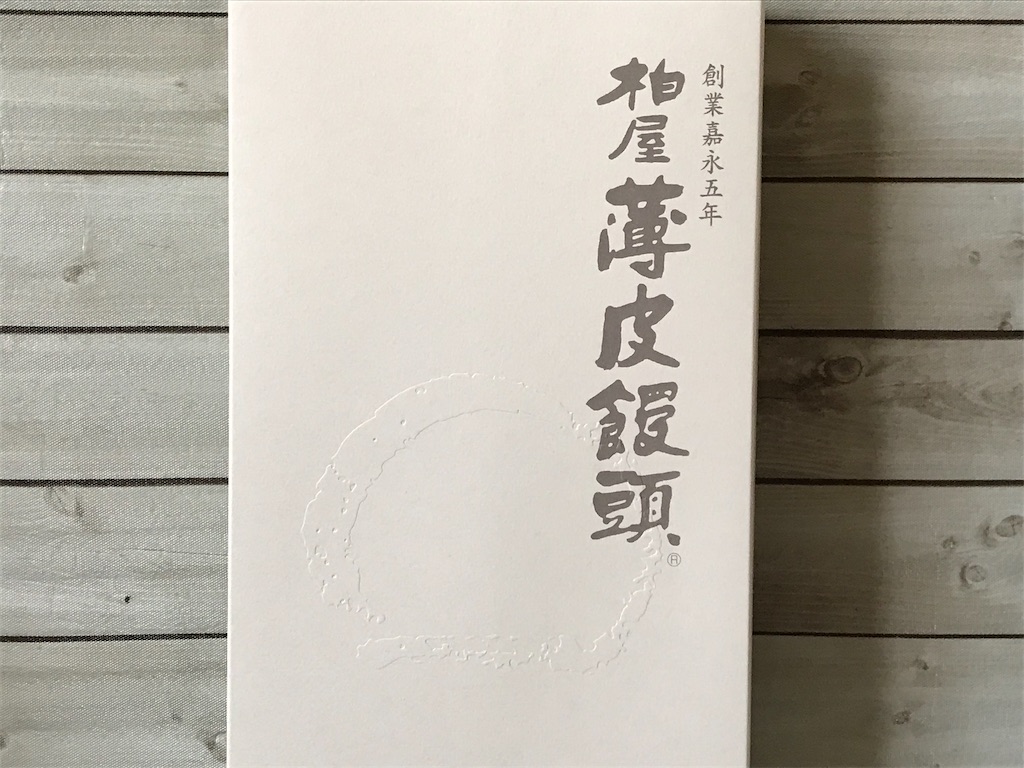 創業嘉永五年
柏屋薄皮饅頭®